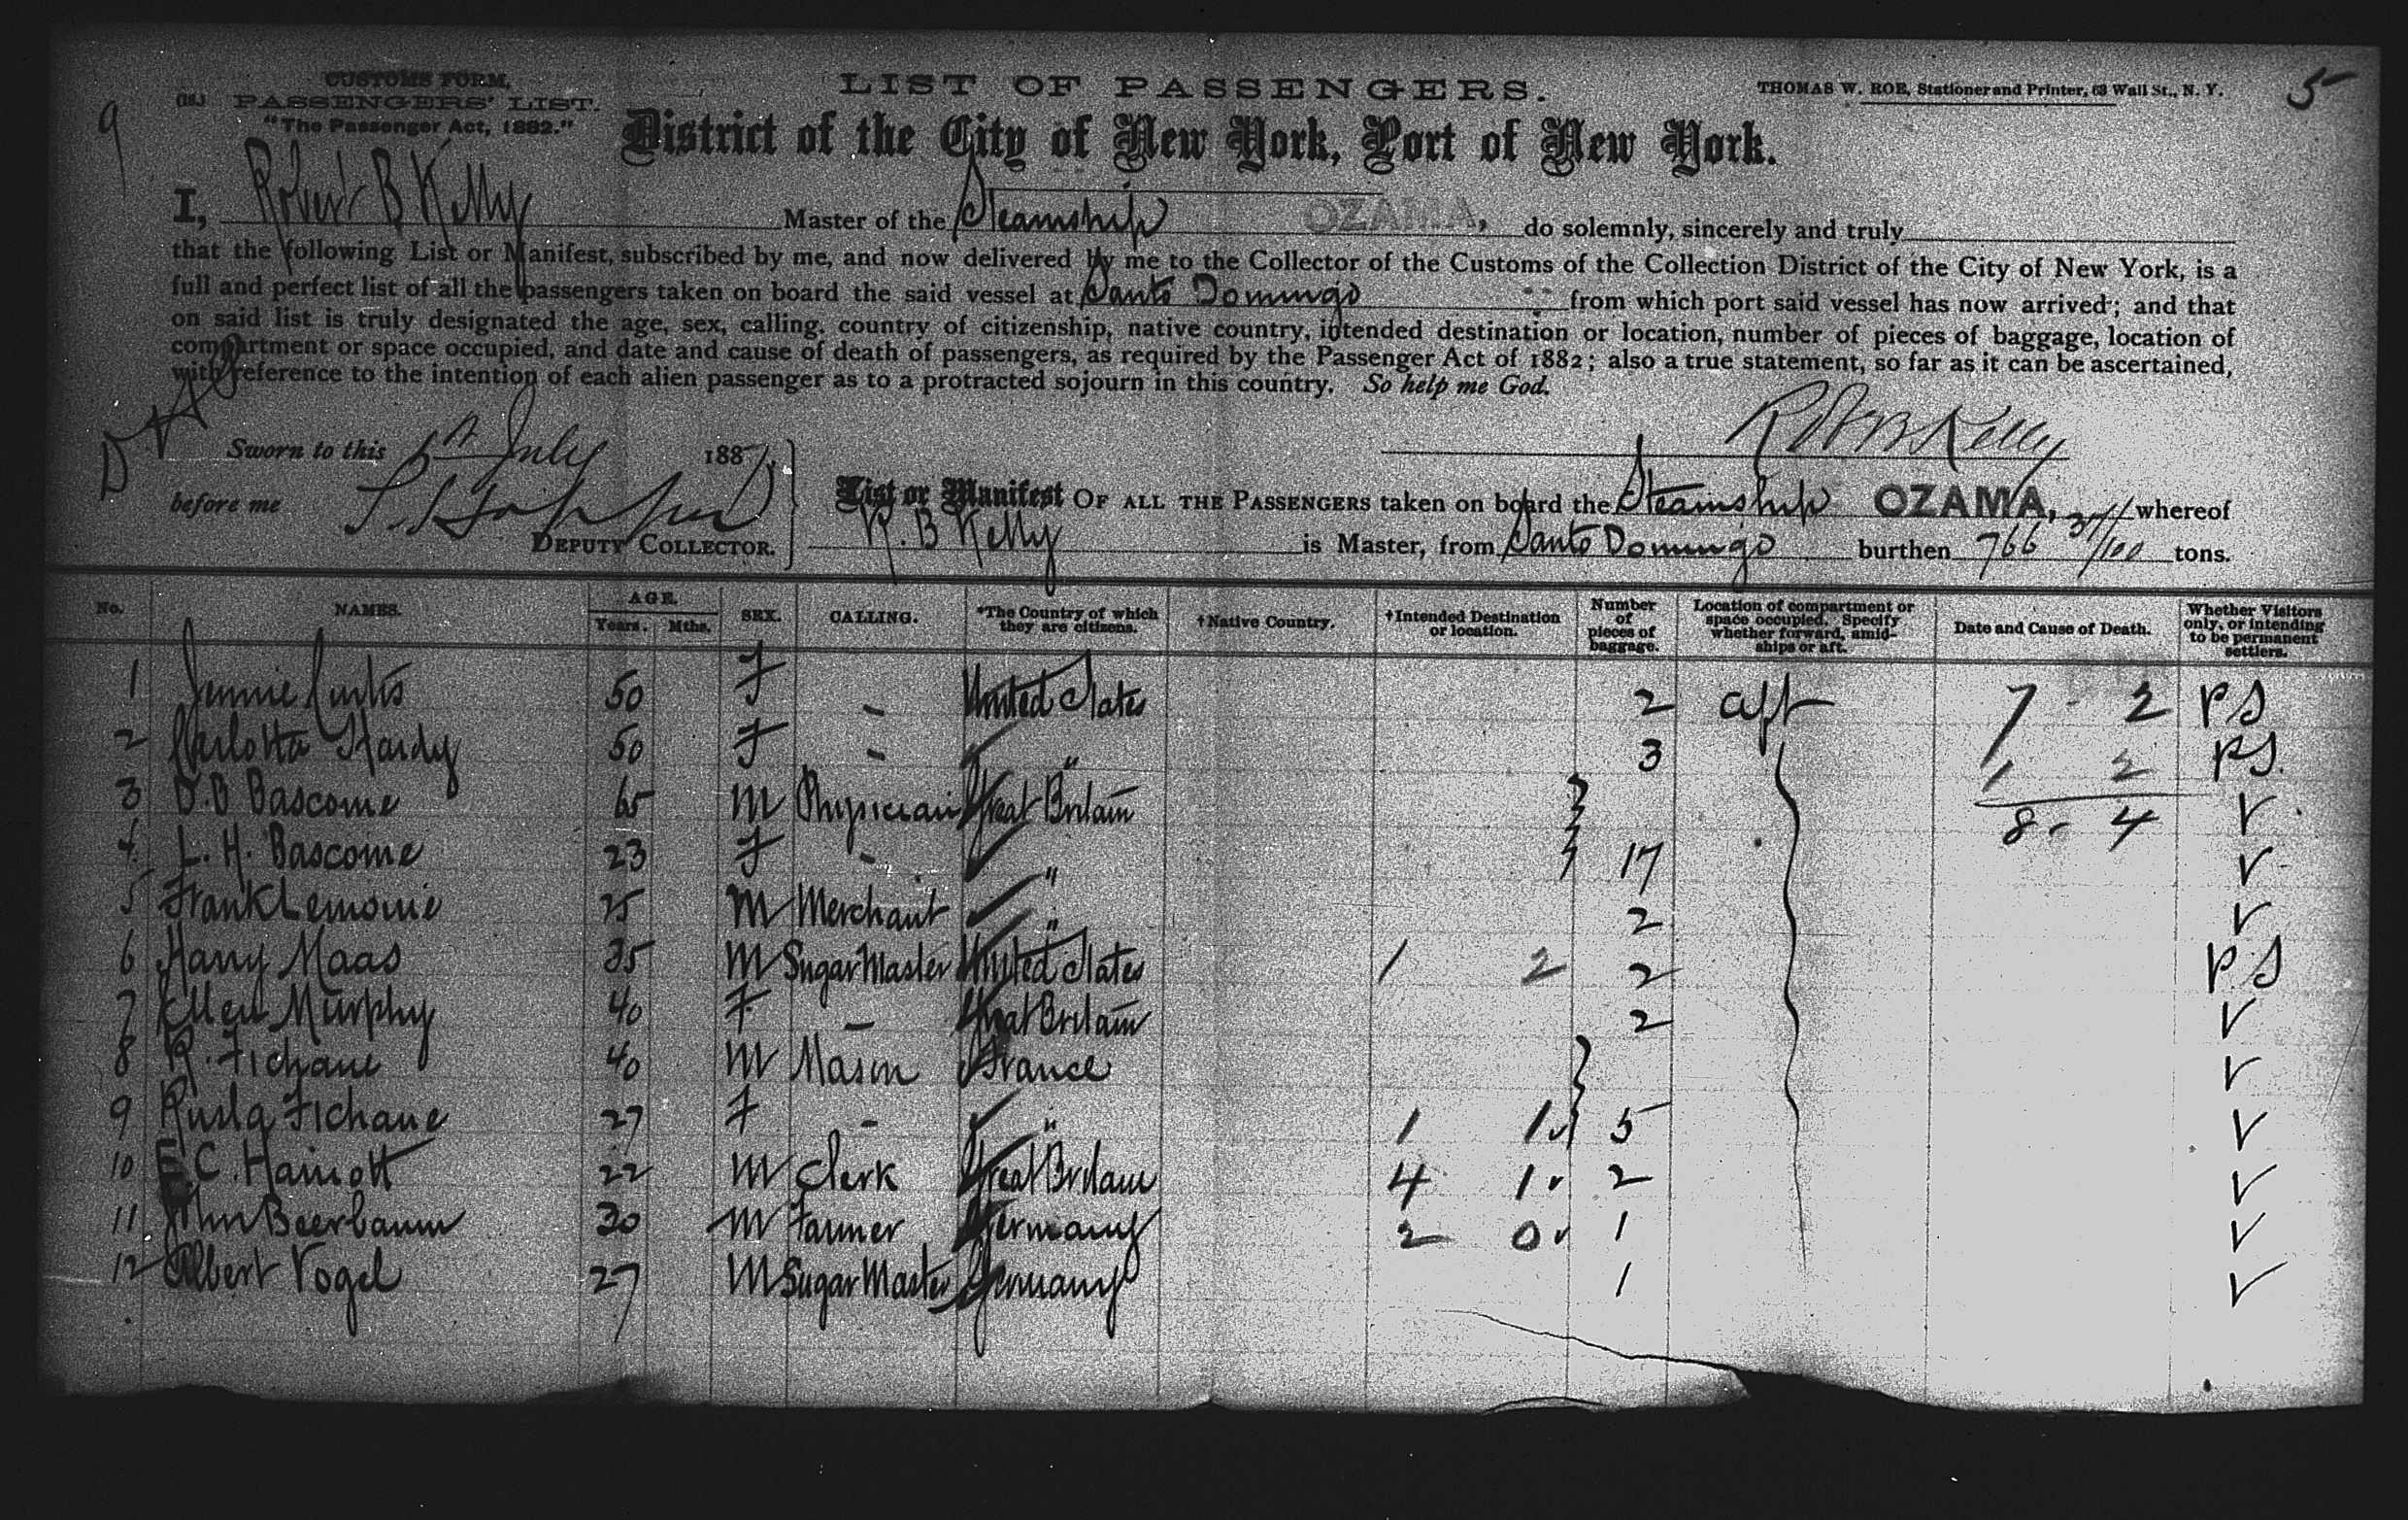 CUSTOMS FORM,
(18.) PASSENGERS' LIST.
"The Passenger Act, 1882."
LIST OF PASSENGERS.
THOMAS W. ROE, Stationer and Printer, 63 Wall St., N. Y.
5
9
District of the City of New York, Port of New York.
I, Robert B Kelly Master of the Steamship OZAMA, do solemnly, sincerely and truly
that the following List or Manifest, subscribed by me, and now delivered by me to the Collector of the Customs of the Collection District of the City of New York, is a
full and perfect list of all the passengers taken on board the said vessel at Santo Domingo from which port said vessel has now arrived; and that
on said list is truly designated the age, sex, calling, country of citizenship, native country, intended destination or location, number of pieces of baggage, location of
compartment or space occupied, and date and cause of death of passengers, as required by the Passenger Act of 1882; also a true statement, so far as it can be ascertained,
with reference to the intention of each alien passenger as to a protracted sojourn in this country. So help me God.
Robt B Kelly
Sworn to this July 1887,
before me
DEPUTY COLLECTOR.
List or Manifest OF ALL THE PASSENGERS taken on board the Steamship OZAMA, whereof
R. B Kelly is Master, from Santo Domingo burthen 766 /100 tons.
No. NAMES. AGE. Years. Mths. SEX. CALLING. *The Country of which they are citizens. †Native Country. †Intended Destination or location. Number of pieces of baggage. Location of compartment or space occupied. Specify whether forward, amidships or aft. Date and Cause of Death. Whether Visitors only, or intending to be permanent settlers.
1 Jennie Curtis 50 F - United States 2 aft 7 - 2 PS
2 Carlotta Hardy 50 F - " 3 1 2 PS.
3 D.B Bascome 65 M Physician Great Britain 8 - 4 V
4 L. H. Bascome 23 F - " 17 V
5 Frank Lemoine 25 M Merchant " 2 V
6 Harry Maas 35 M Sugar Master United States 1 2 2 PS
7 Ellen Murphy 40 F - Great Britain 2 V
8 R. Fichane 40 M Mason France V
9 Fichane 27 F - " 1 1 5 V
10 E.C. Harriott 22 M Clerk Great Britain 4 1 2 V
11 John Beerbaum 30 M Farmer Germany 2 0 1 V
12 Albert Vogel 27 M Sugar Master Germany 1 V